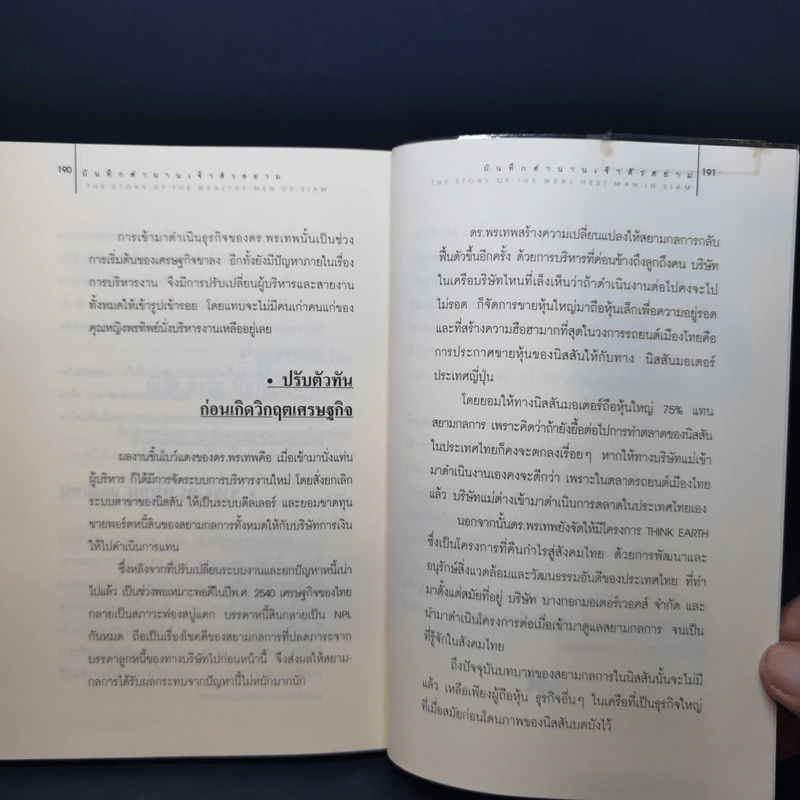 190 บันทึกตำนานเจ้าสัวสยาม
THE STORY OF THE WEALTHY MEN OF SIAM
การเข้ามาดำเนินธุรกิจของดร.พรเทพนั้นเป็นช่วง
การเริ่มต้นของเศรษฐกิจขาลง อีกทั้งยังมีปัญหาภายในเรื่อง
การบริหารงาน จึงมีการปรับเปลี่ยนผู้บริหารและสายงาน
ทั้งหมดให้เข้ารูปเข้ารอย โดยแทบจะไม่มีคนเก่าคนแก่ของ
คุณหญิงพรทิพย์นั่งบริหารงานเหลืออยู่เลย
• ปรับตัวทัน
ก่อนเกิดวิกฤตเศรษฐกิจ
ผลงานชิ้นโบว์แดงของดร.พรเทพคือ เมื่อเข้ามานั่งแท่น
ผู้บริหาร ก็ได้มีการจัดระบบการบริหารงานใหม่ โดยสั่งยกเลิก
ระบบสาขาของนิสสัน ให้เป็นระบบดีลเลอร์ และยอมขาดทุน
ขายพอร์ตหนี้สินของสยามกลการทั้งหมดให้กับบริษัทการเงิน
ให้ไปดำเนินการแทน
ซึ่งหลังจากที่ปรับเปลี่ยนระบบงานและยกปัญหาหนี้เน่า
ไปแล้ว เป็นช่วงพอเหมาะพอดีในปีพ.ศ. 2540 เศรษฐกิจของไทย
กลายเป็นสภาวะฟองสบู่แตก บรรดาหนี้สินกลายเป็น NPL
กันหมด ถือเป็นเรื่องโชคดีของสยามกลการที่ปลดภาระจาก
บรรดาลูกหนี้ของทางบริษัทไปก่อนหน้านี้ จึงส่งผลให้สยาม-
กลการได้รับผลกระทบจากปัญหานี้ไม่หนักมากนัก
บันทึกตำนานเจ้าสัวสยาม 191
THE STORY OF THE WEAL HEST MAN IN SIAM
ดร.พรเทพสร้างความเปลี่ยนแปลงให้สยามกลการกลับ
ฟื้นตัวขึ้นอีกครั้ง ด้วยการบริหารที่ค่อนข้างถึงลูกถึงคน บริษัท
ในเครือบริษัทไหนที่เล็งเห็นว่าถ้าดำเนินงานต่อไปคงจะไป
ไม่รอด ก็จัดการขายหุ้นใหญ่มาถือหุ้นเล็กเพื่อความอยู่รอด
และที่สร้างความฮือฮามากที่สุดในวงการรถยนต์เมืองไทยคือ
การประกาศขายหุ้นของนิสสันให้กับทาง นิสสันมอเตอร์
ประเทศญี่ปุ่น
โดยยอมให้ทางนิสสันมอเตอร์ถือหุ้นใหญ่ 75% แทน
สยามกลการ เพราะคิดว่าถ้ายังยื้อต่อไปการทำตลาดของนิสสัน
ในประเทศไทยก็คงจะตกลงเรื่อยๆ หากให้ทางบริษัทแม่เข้า
มาดำเนินงานเองคงจะดีกว่า เพราะในตลาดรถยนต์เมืองไทย
แล้ว บริษัทแม่ต่างเข้ามาดำเนินการตลาดในประเทศไทยเอง
นอกจากนั้นดร.พรเทพยังจัดให้มีโครงการ THINK EARTH
ซึ่งเป็นโครงการที่คืนกำไรสู่สังคมไทย ด้วยการพัฒนาและ
อนุรักษ์สิ่งแวดล้อมและวัฒนธรรมอันดีของประเทศไทย ที่ทำ
มาตั้งแต่สมัยที่อยู่ บริษัท บางกอกมอเตอร์เวอคส์ จำกัด และ
นำมาดำเนินโครงการต่อเมื่อเข้ามาดูแลสยามกลการ จนเป็น
ที่รู้จักในสังคมไทย
ถึงปัจจุบันบทบาทของสยามกลการในนิสสันนั้นจะไม่มี
แล้ว เหลือเพียงผู้ถือหุ้น ธุรกิจอื่นๆ ในเครือที่เป็นธุรกิจใหญ่
ที่เมื่อสมัยก่อนโดนภาพของนิสสันบดบังไว้